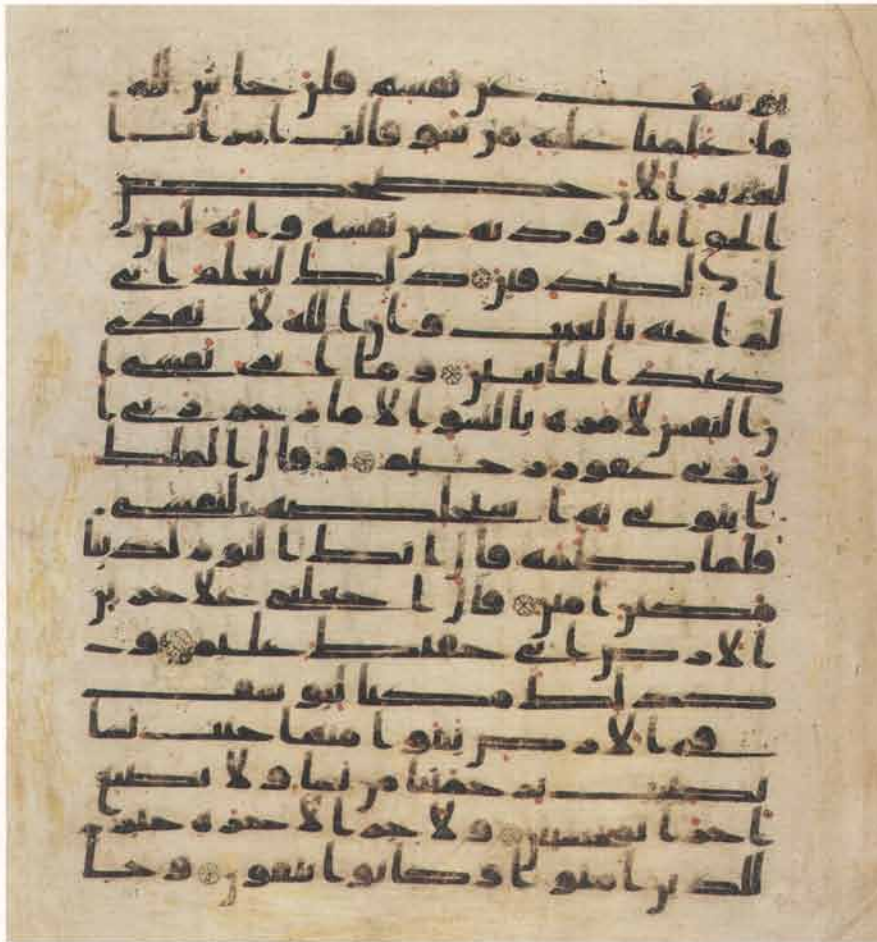 يوسف عن نفسه قلن حاش لله
ما علمنا عليه من سو قالت امرات ا
لعزيز الان حصحص
الحق انا رودته عن نفسه وانه لمن
الصدقين ۞ ذلك ليعلم اني
لم اخنه بالغيب وان الله لا يهدي
كيد الخاينين ۞ وما ابري نفسي ا
ن النفس لاماره بالسو الا ما رحم ربي ا
ن ربي غفور رحيم ۞ وقال الملك
ايتوني به استخلصه لنفسي
فلما كلمه قال انك اليوم لدينا
مكين امين ۞ قال اجعلني علا خزين
الارض اني حفيظ عليم ۞ و
كذلك مكنا ليوسف
في الارض يتبوا منها حيث يشا
نصيب برحمتنا من نشا ولا نضيع
اجر المحسنين ۞ ولاجر الاخره خير
للذين امنوا وكانوا يتقون ۞ وجا